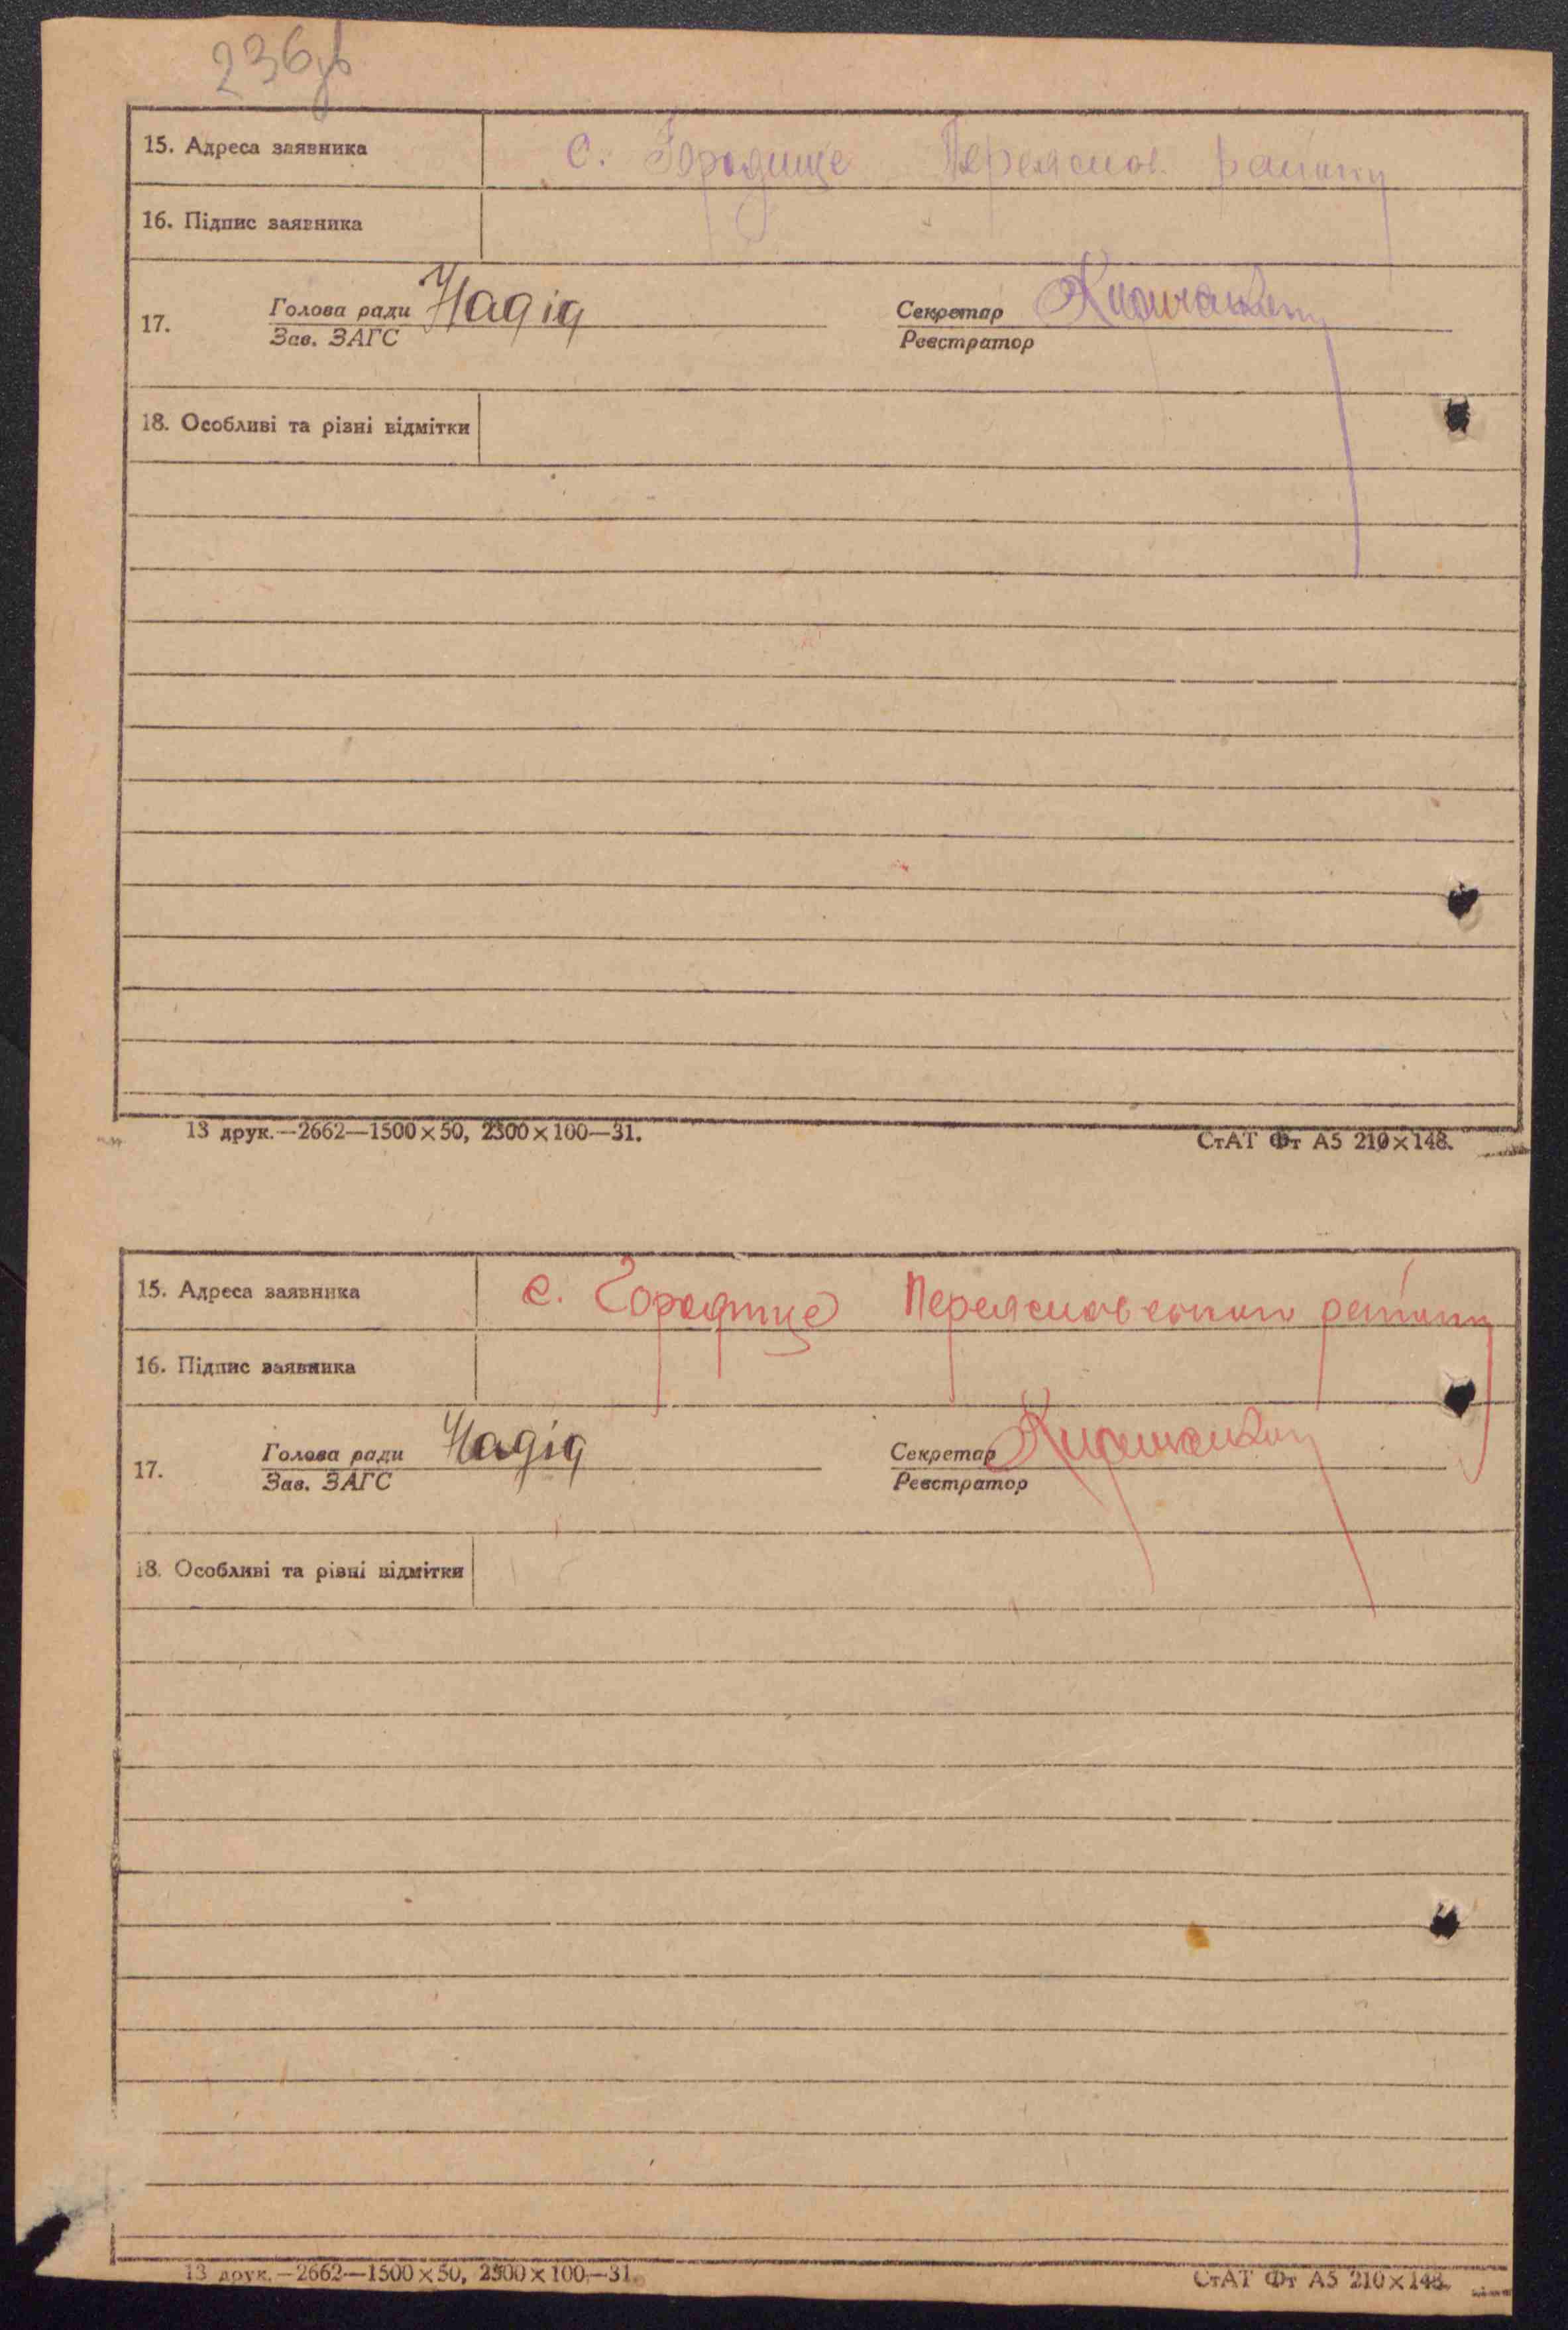 236зв
15. Адреса заявника с. Городище Переяслов. району
16. Підпис заявника
17. Голова ради Надід Секретар
Зав. ЗАГС Реєстратор
18. Особливі та різні відмітки
13 друк.—2662—1500×50, 2300×100—31. СтАТ Фт А5 210×148.
15. Адреса заявника с. Городище Переясловського району
16. Підпис заявника
17. Голова ради Надід Секретар
Зав. ЗАГС Реєстратор
18. Особливі та різні відмітки
13 друк.—2662—1500×50, 2300×100—31. СтАТ Фт А5 210×148.